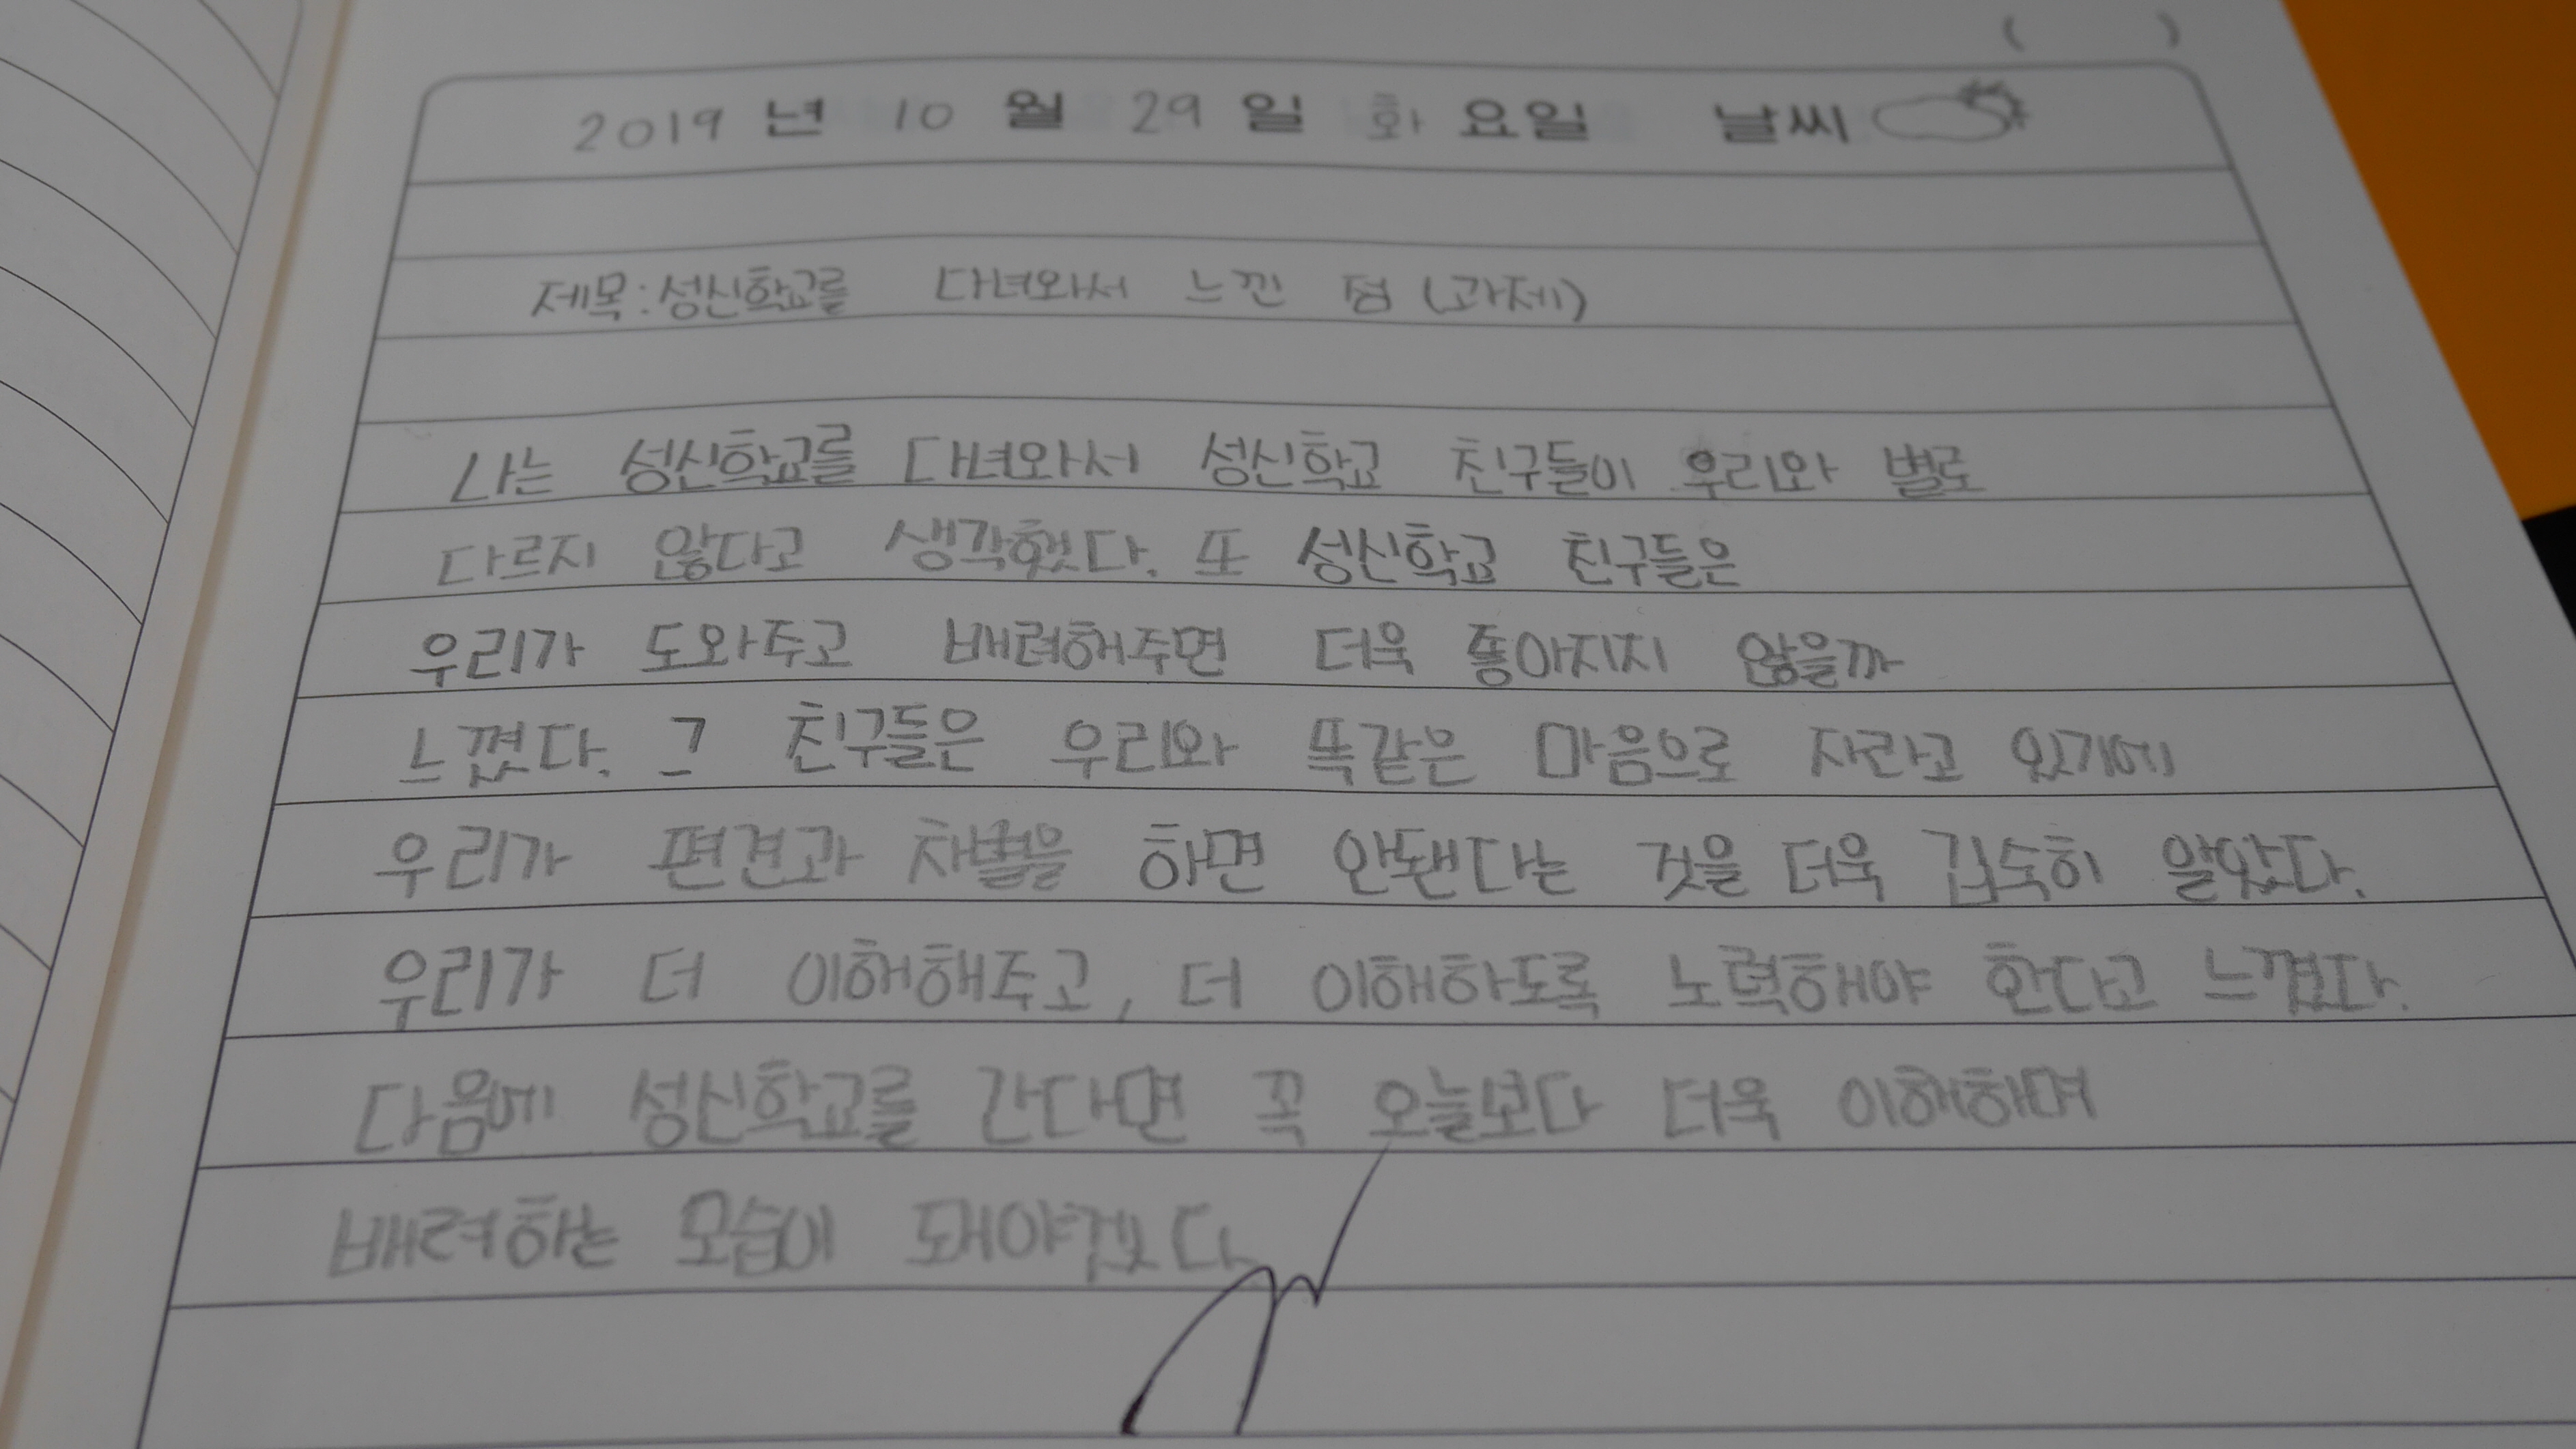 ( )
2019 년 10 월 29 일 화 요일 날씨
제목:성신학교를 다녀와서 느낀 점 (과제)
나는 성신학교를 다녀와서 성신학교 친구들이 우리와 별로
다르지 않다고 생각했다. 또 성신학교 친구들은
우리가 도와주고 배려해주면 더욱 좋아지지 않을까
느꼈다. 그 친구들은 우리와 똑같은 마음으로 자라고 있기에
우리가 편견과 차별을 하면 안됀다는 것을 더욱 깁숙히 알았다.
우리가 더 이해해주고, 더 이해하도록 노력해야 한다고 느꼈다.
다음에 성신학교를 간다면 꼭 오늘보다 더욱 이해하며
배려하는 모습이 돼야겠다.